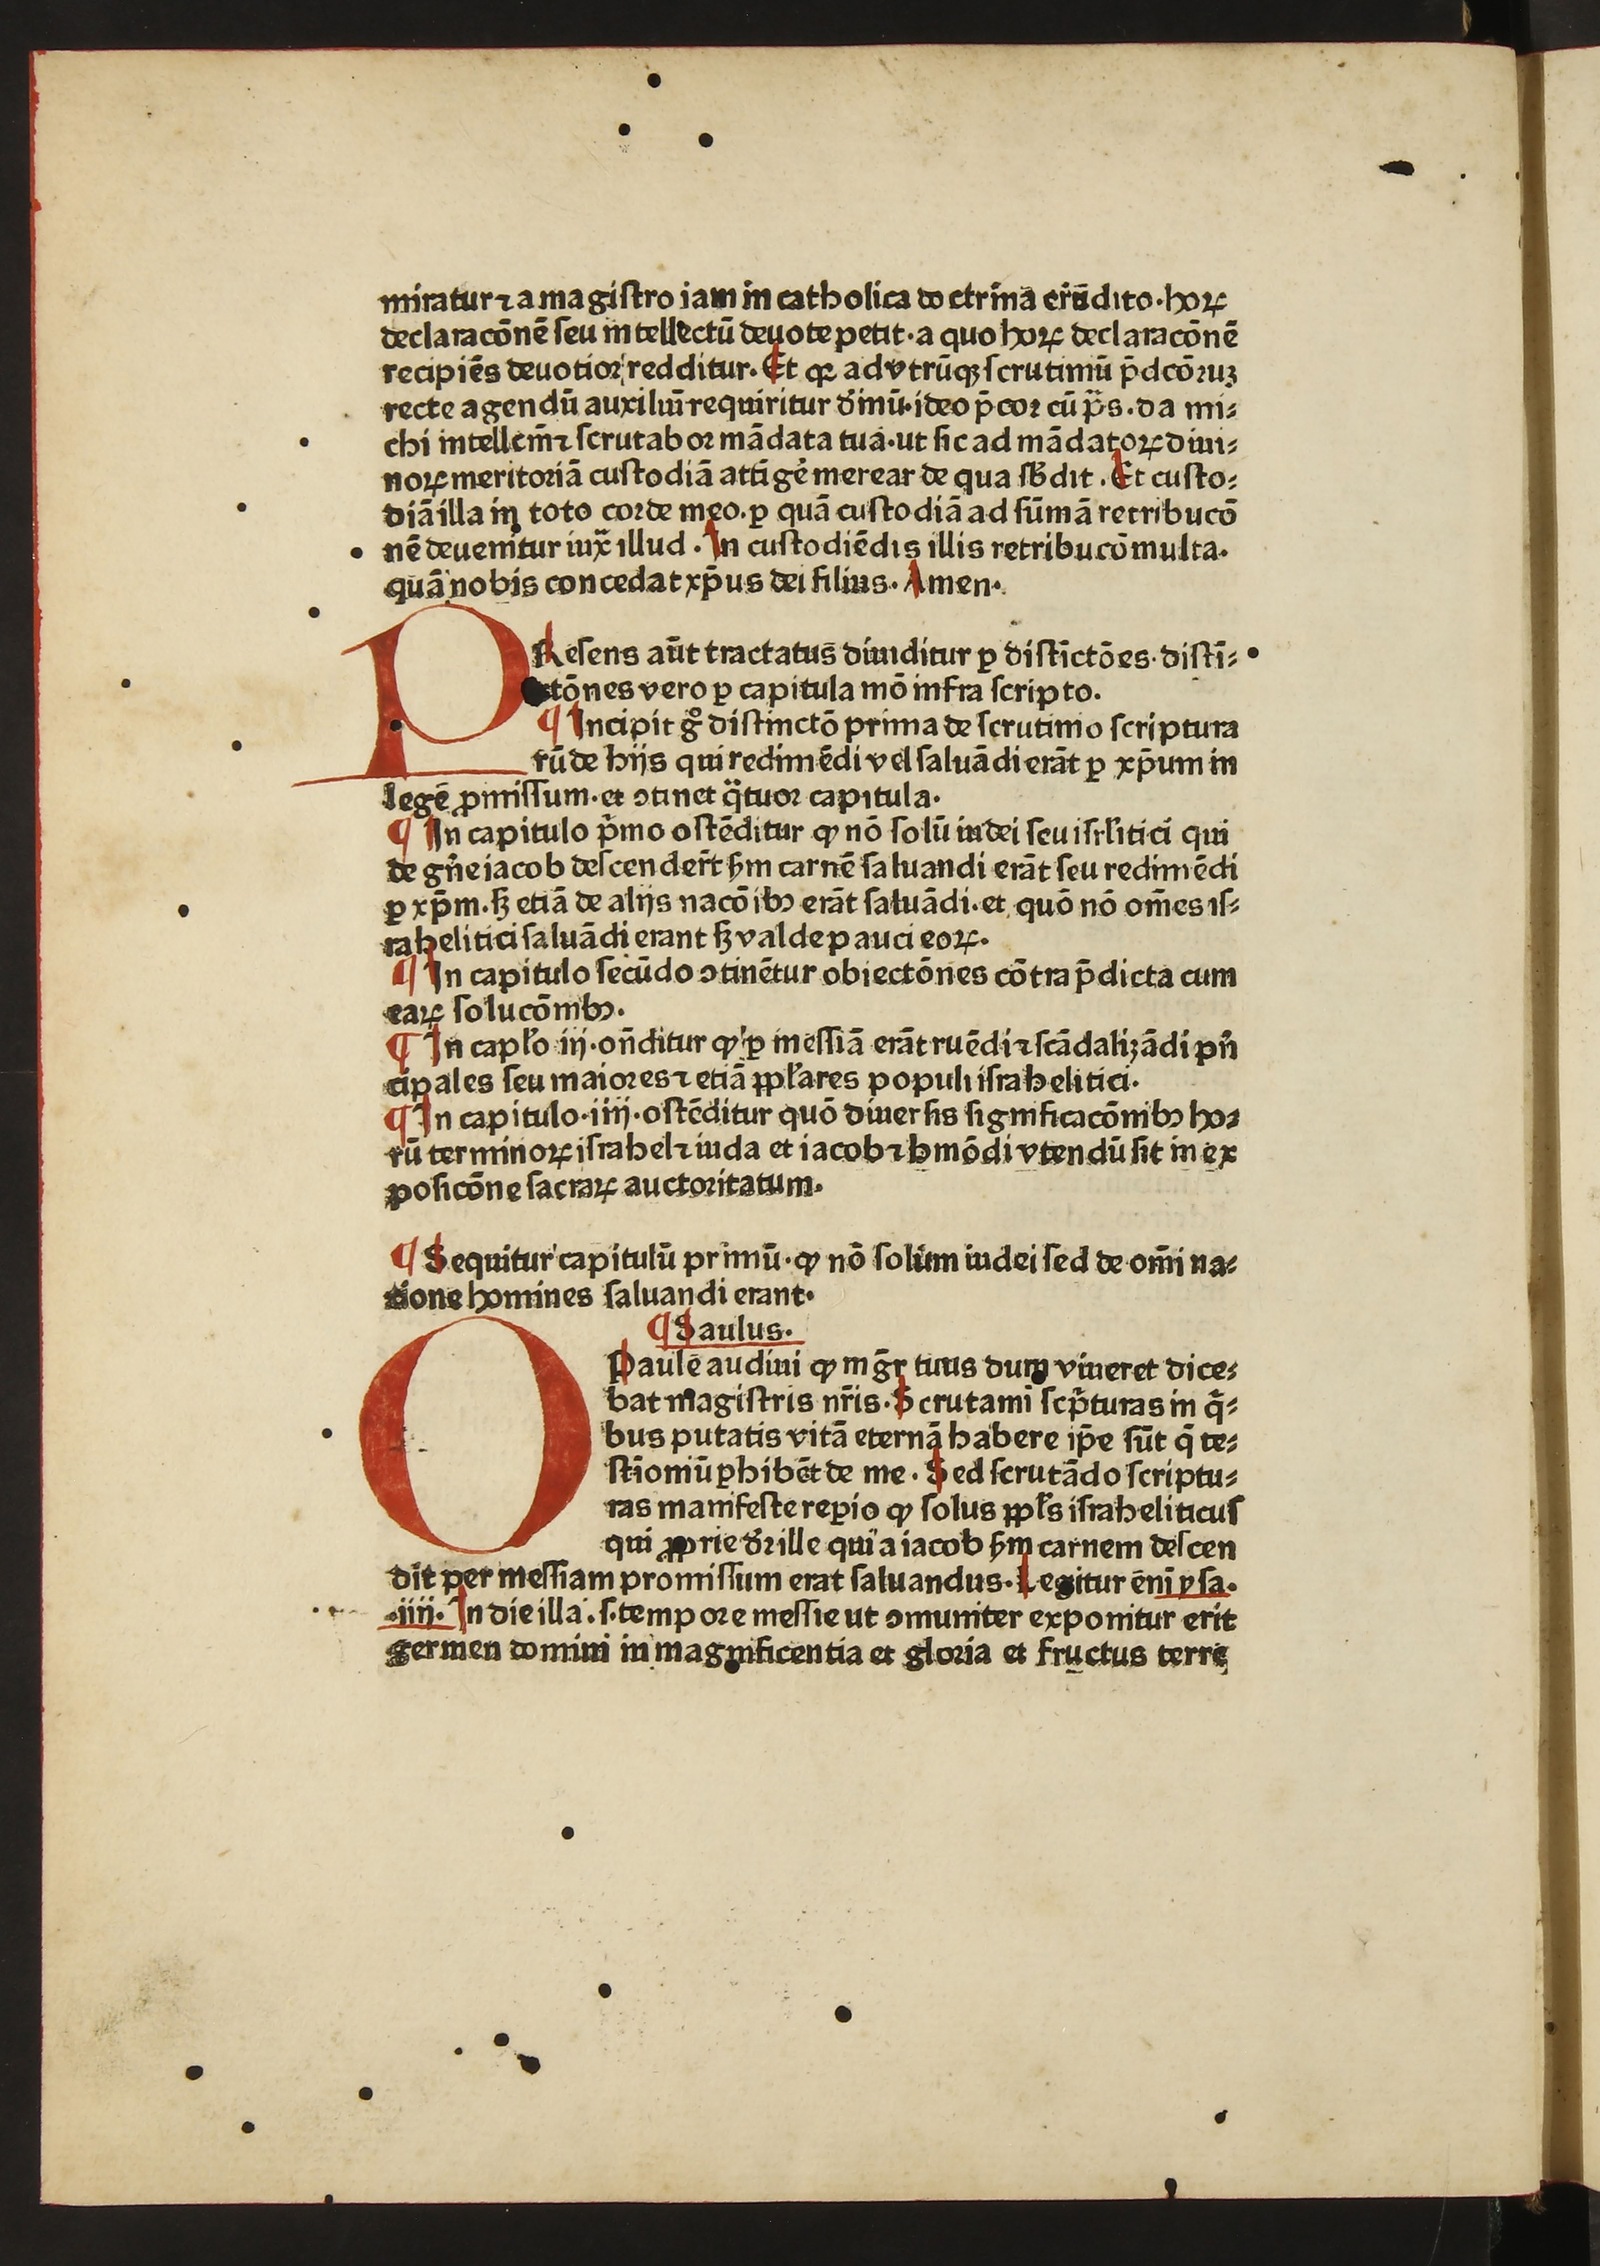 miratur ⁊ a magistro iam in catholica doctrina erudito · hoꝝ
declaracōnē seu intellectū deuote petit · a quo hoꝝ declaracōnē
recipiēs deuotior redditur. Et qꝛ ad vtrūqꝫ scrutiniū p̄dcōruꝫ
recte agendū auxiliū requiritur diuinū · ideo p̄cor cū p̄s. da mi⸗
chi intellcm̄ ⁊ scrutabor mādata tua · ut sic ad mādatoꝝ diui⸗
noꝝ meritoriā custodiā attīgē merear de qua sbdit. Et custo⸗
diā illa in toto corde meo. ꝑ quā custodiā ad sūmā retribucō
nē deuenitur iuxͣ illud. In custodiēdis illis retribucō multa.
quā nobis concedat xp̄us dei filius. Amen.
PResens aūt tractatus diuiditur ꝑ distīctōes · distī⸗
ctōnes vero ꝑ capitula mō infra scripto.
¶ Incipit gͦ distinctō prima de scrutinio scriptura
rū de hijs qui redimēdi vel saluādi erāt ꝑ xp̄um in
legē ꝓmissum · et ↄtinet qͣtuor capitula.
¶ In capitulo p̄mo ostēditur ꝙ nō solū iudei seu isrl̄itici qui
de gn̄e iacob descendert̄ ẜm carnē saluandi erāt seu redimēdi
ꝑ xp̄m. sꝫ etiā de alijs nacōibꝰ erāt saluādi · et quō nō om̄es is⸗
rahelitici saluādi erant sꝫ valde pauci eoꝝ.
¶ In capitulo secūdo ↄtinētur obiectōnes cōtra p̄dicta cum
eaꝝ solucōnibꝰ.
¶ In capl̄o iij · on̄ditur ꝙ ꝑ messiā erāt ruēdi ⁊ scādalizādi pn̄
cipales seu maiores ⁊ etiā ppl̄ares populi israhelitici.
¶ In capitulo · iiij · ostēditur quō diuersis significacōnibꝰ ho⸗
rū terminoꝝ israhel ⁊ iuda et iacob ⁊ hmōdi vtendū sit in ex
posicōne sacraꝝ auctoritatum.
¶ Sequitur capitulū primū · ꝙ nō solum iudei sed de om̄i na⸗
tione homines saluandi erant.
¶ Saulus.
O Paule audiui ꝙ mḡr tuus dum viueret dice⸗
bat magistris nr̄is. Scrutamī scp̄turas in q̄⸗
bus putatis vitā eternā habere ip̄e sūt q̄ te⸗
stīoniū ꝑhibēt de me. Sed scrutādo scriptu⸗
ras manifeste reꝑio ꝙ solus ppl̄s israheliticus
qui ꝓprie dr̄ ille qui a iacob ẜm carnem descen
dit per messiam promissum erat saluandus. Legitur enī ysa.
.iiij. In die illa. s. tempore messie ut ↄmuniter exponitur erit
germen domini in magnificentia et gloria et fructus terre